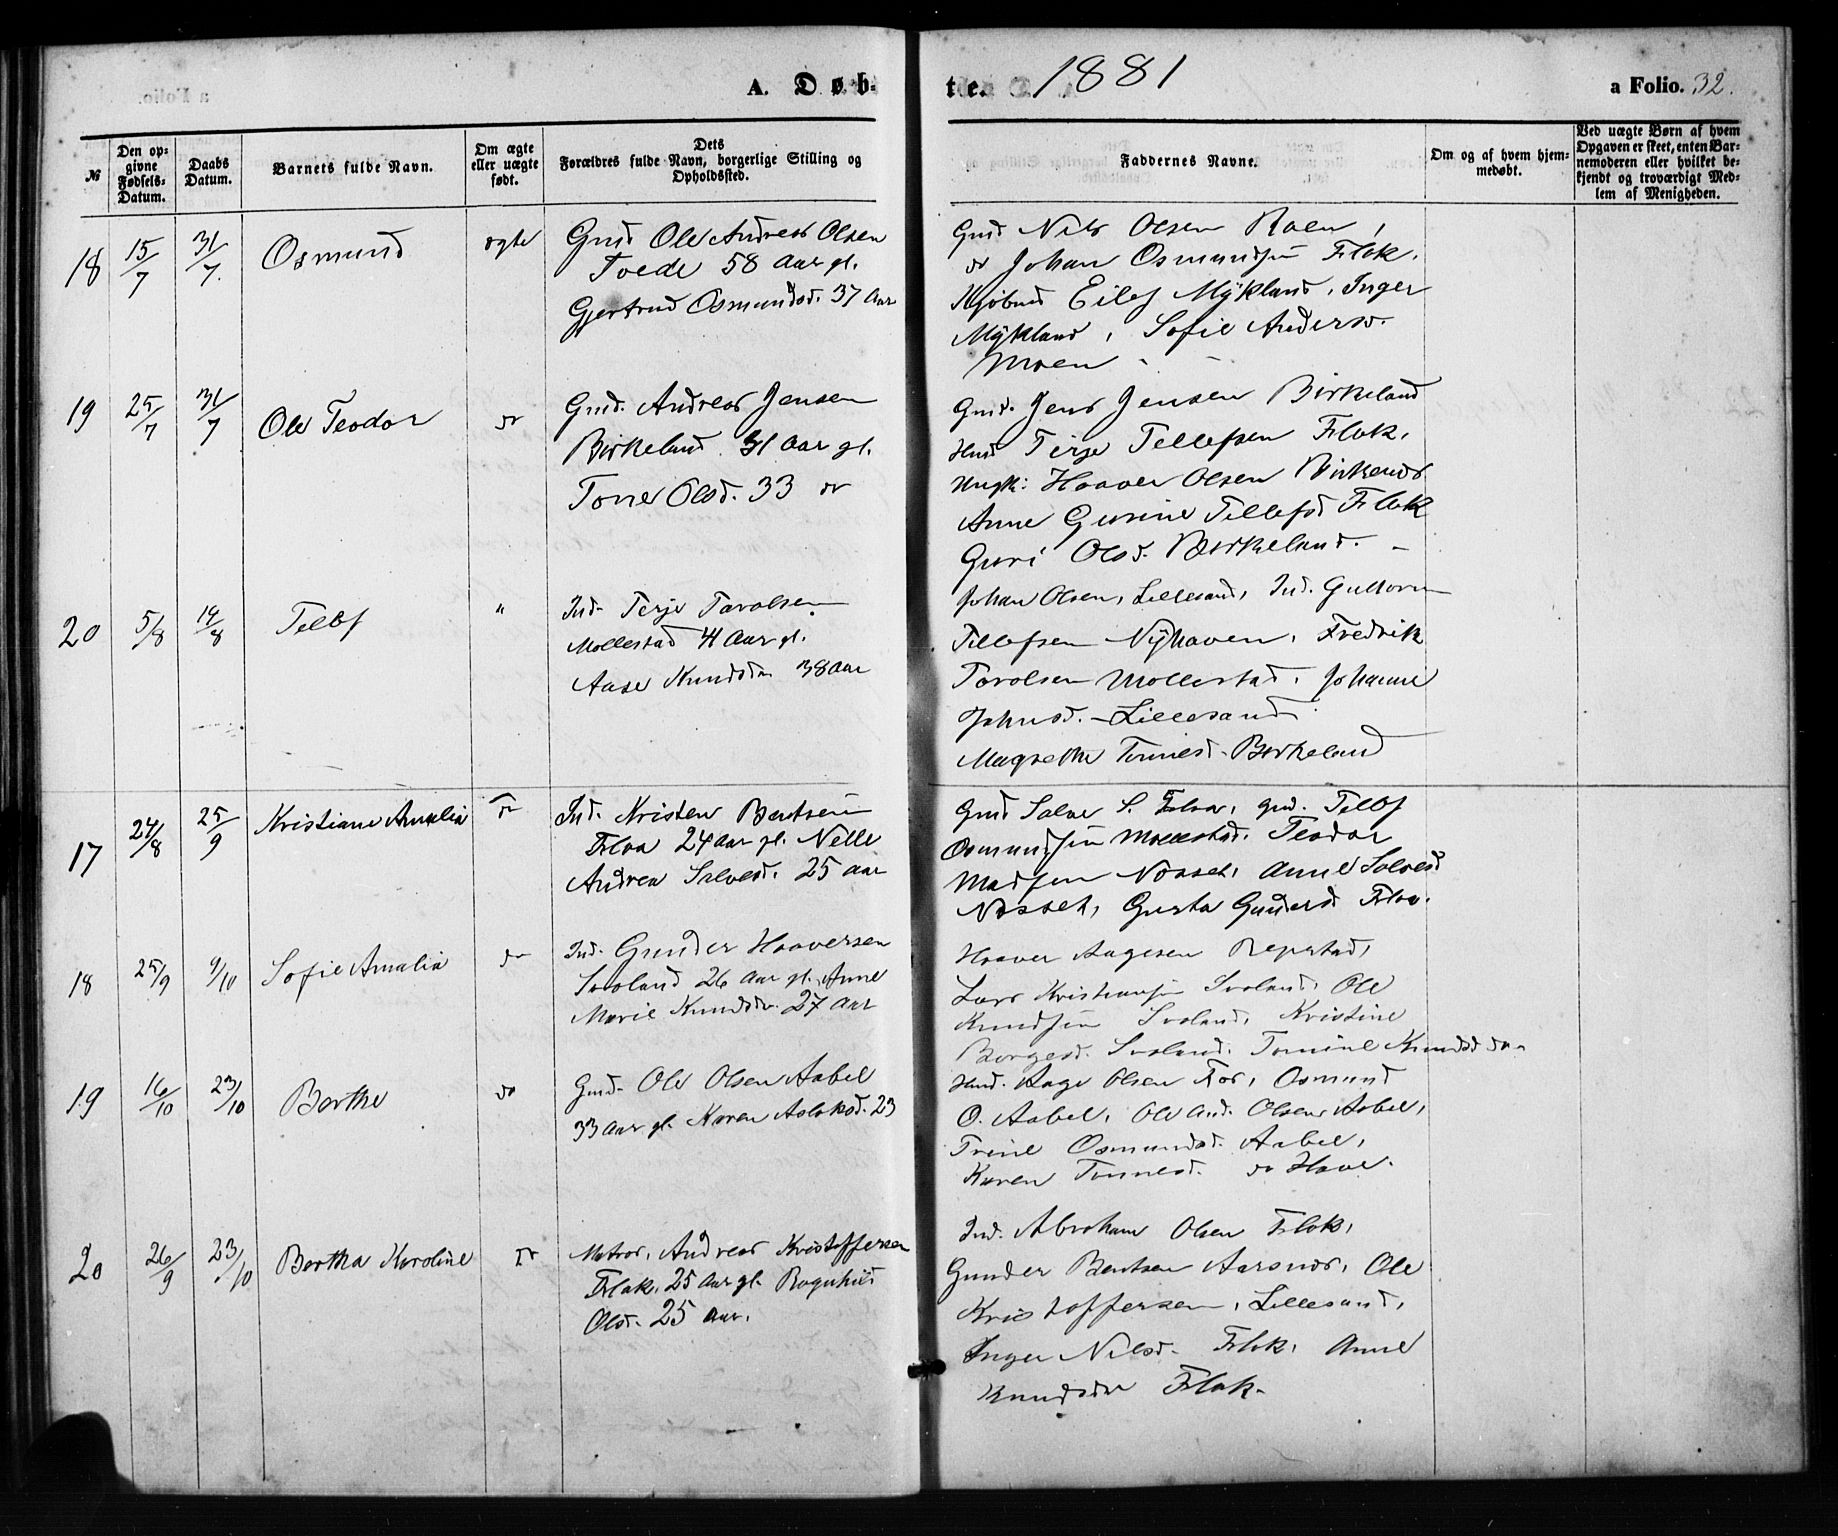 A. Døb-
te. 1881
a Folio. 32.
№
Den op-
givne
Fødsels-
Datum.
Daabs
Datum.
Barnets fulde Navn.
Om ægte
eller uægte
født.
Dets
Forældres fulde Navn, borgerlige Stilling og
Opholdssted.
Faddernes Navne.
Om og af hvem hjem-
medøbt.
Ved uægte Børn af hvem
Opgaven er skeet, enten Bar-
nemoderen eller hvilket be-
kjendt og troværdigt Med-
lem af Menigheden.
18 15/7 31/7. Osmund ægte
Gmd Ole Andreas Olsen
Tvede 58 Aar gl.
Gjertrud Osmundsd. 37 Aar
Gmd Nils Olsen Roen,
do Johan Osmundsen Flak.
Eilef Mykland, Inger
Mykland, Sofie Andersd.
Moen
19 25/7 31/7 Ole Teodor do
Gmd. Andreas Jensen
Birkeland 31 Aar gl.
Tone Olsd. 33 do
Gmd. Jens Jensen Birkeland
Terje Tellefsen Flak.
Ungk: Haaver Olsen
Anne Gurine Tellefsd Flak
Guri Olsd. Birkeland.
20 5/8 14/8 Tellef "
Ind. Terje Tarolsen
Mollestad 41 Aar gl.
Aase Knudsdr 38 Aar
Johan Olsen, Lillesand, Ind. Guttorm
Tellefsen Nyhaven, Fredrik
Tarolsen Mollestad. Johanne
Johnsd. - Lillesand
Magrethe Tønnesd. Birkeland
17 24/8 25/9 Kristiane Amalia do
Ind. Kristen Bentsen
Flaa 24 Aar gl. Nelle
Andrea Salvesd. 25 Aar
Gmd Salve S. Flaa, gmd. Tellef
Osmundsen Mollestad. Teodor
Madsen Næsset, Anne Salvesd
Næsset, Gusta Gundersd Flaa.
18 25/9 9/10 Sofie Amalia do
Ind. Gunder Haaversen
Svaland 26 Aar gl. Anne
Marie Knudsdr. 27 Aar
Haaver Aagesen Repstad,
Lars Kristiansen Svaland, Ole
Knudsen Svaland, Kristine
Børgesd. Svaland. Tomine Knudsd do
19 16/10 23/10 Berthe do
Gmd. Ole Olsen Aabel
33 Aar gl. Karen Aslaksd. 23
Aage Olsen Osmund
O. Aabel, Ole And. Olsen Aabel,
Trine Osmundsd. Aabel,
Karen Tønnesd. do Have.
20 26/9 23/10 Bertha Karoline do
Matros, Andreas Kristoffersen
Flak, 25 Aar gl. Ragnhild
Olsd. 25 Aar.
Ind. Abraham Olsen Flak,
Gunder Bentsen Aarsnes, Ole
Kristoffersen, Lillesand,
Inger Nilsd. Flak, Anne
Knudsdr Flak.